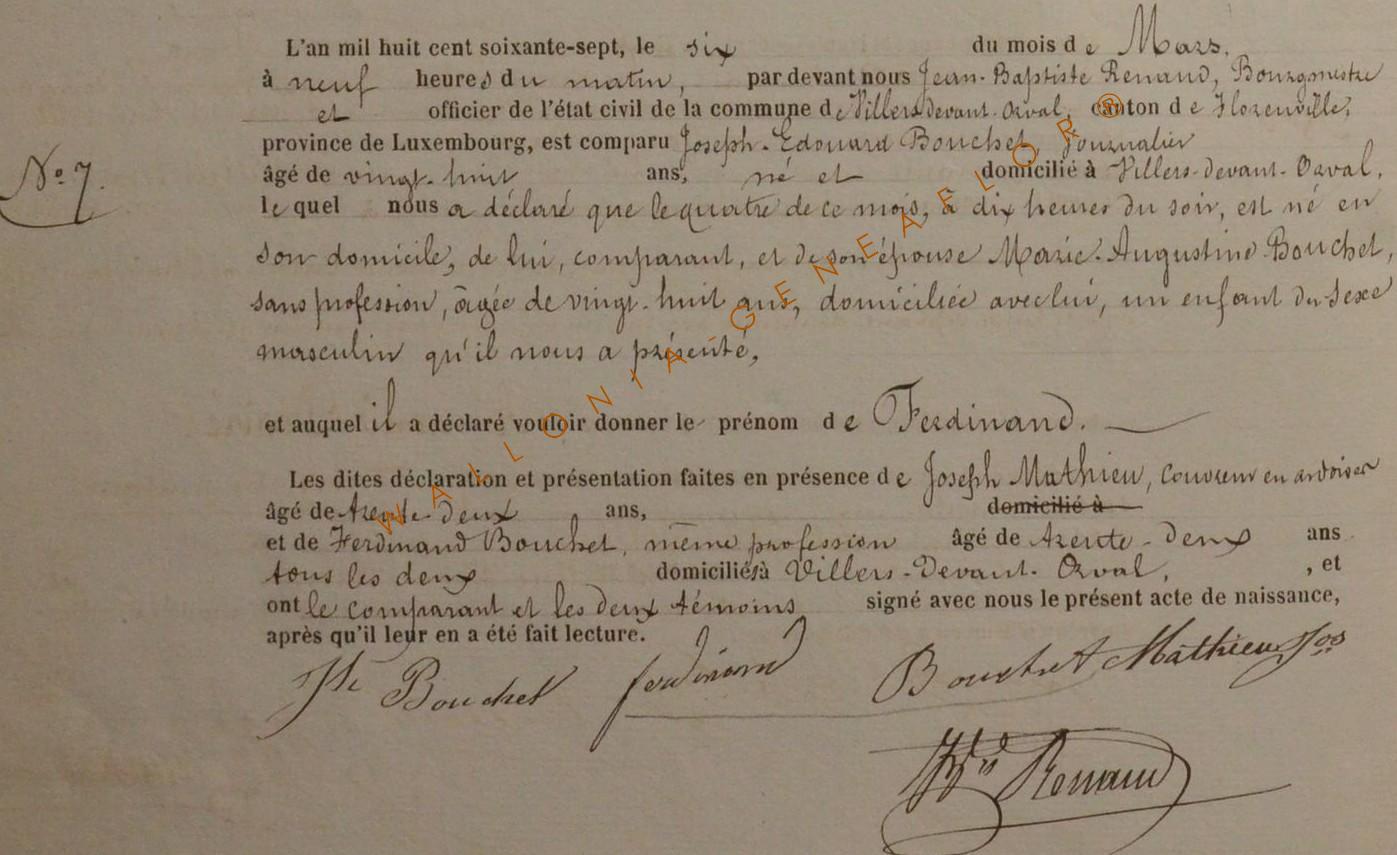 L'an mil huit cent soixante-sept, le six du mois de Mars,
à neuf heures du matin, par devant nous Jean-Baptiste Renaud, Bourgmestre
et officier de l'état civil de la commune de Villers devant Orval, canton de Florenville,
province de Luxembourg, est comparu Joseph-Edouard Bouchet, Journalier
No 7.
âgé de vingt-huit ans, né et domicilié à Villers-devant-Orval,
lequel nous a déclaré que le quatre de ce mois, à dix heures du soir, est né en
son domicile, de lui, comparant, et de son épouse Marie-Augustine Bouchet,
sans profession, âgée de vingt-huit ans, domiciliée avec lui, un enfant du sexe
masculin qu'il nous a présenté,
et auquel il a déclaré vouloir donner le prénom de Ferdinand.
Les dites déclaration et présentation faites en présence de Joseph Mathieu, couvreur en ardoises
âgé de trente-deux ans, domicilié à
et de Ferdinand Bouchet, même profession âgé de trente-deux ans
tous les deux domiciliés à Villers-Devant-Orval, , et
ont le comparant et les deux témoins signé avec nous le présent acte de naissance,
après qu'il leur en a été fait lecture.
Bouchet ferdinand Bouchet Mathieu Jos
Renaud
WALLONIA GENEALOR®